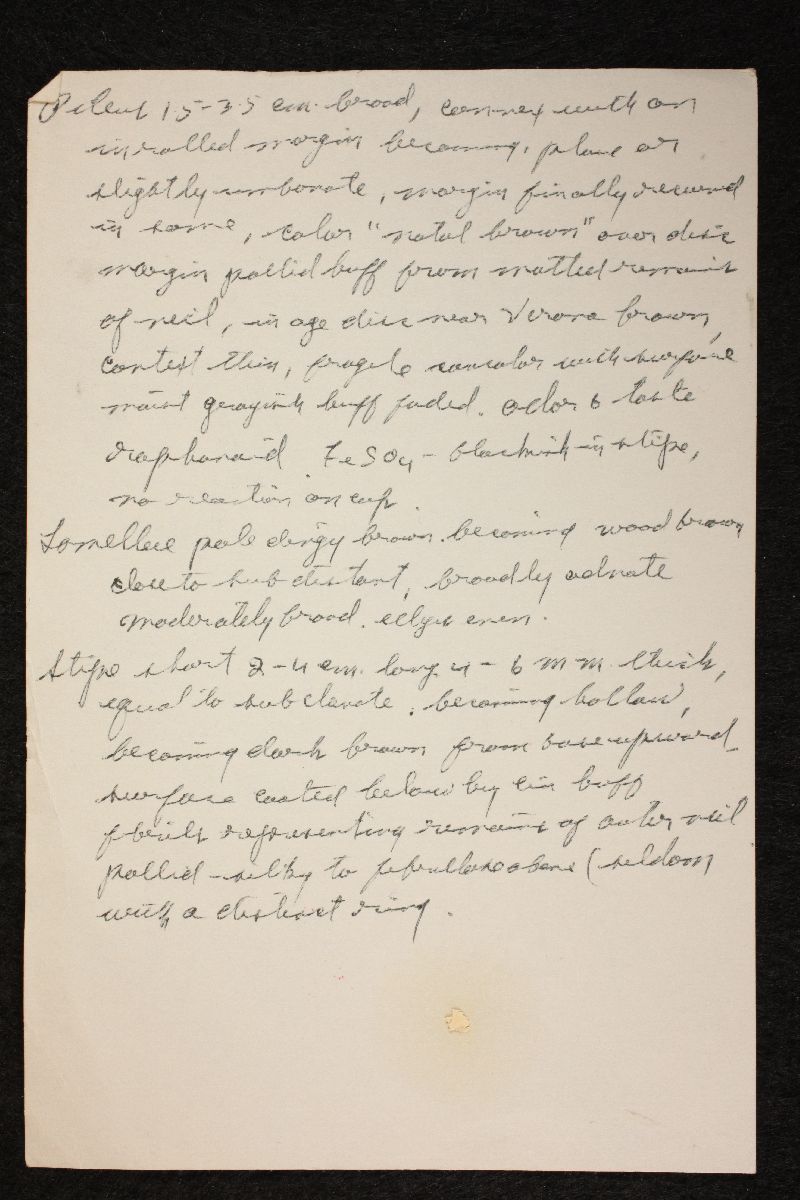 Pileus 1.5-3.5 cm. broad, convex with an
inrolled margin becoming, plane or
slightly umbonate, margin finally recurved
in some, color "natal brown" over disc
margin pallid buff from matted remains
of veil, in age disc near Verona brown,
context thin, fragile concolor with surface
moist grayish buff faded. odor & taste
raphanoid FeSO4 - blackish in stipe,
no reaction on cap.
Lamellae pale dingy brown. becoming wood brown
close to subdistant, broadly adnate
moderately broad. edges even.
Stipe short 2-4 cm. long 4-6 mm. thick,
equal to subclavate, becoming hollow,
becoming dark brown from base upward
surface coated below by buff
fibrils representing remains of outer veil
pallid-silky to fibrillose above (seldom
with a distinct ring.